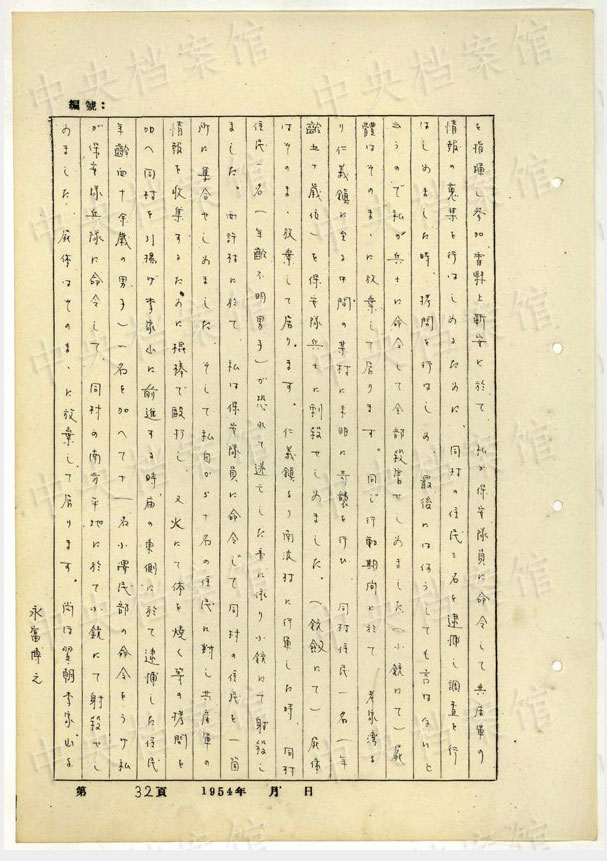 編號：
を指揮し参加、霍県上靳安に於て 私が保安隊員に命令して共産軍の
情報の蒐集を行はしめるために、同村の住民三名を逮捕し調査を行
はしめました時、拷問を行はしめ、最後にはどうしても言はないと
云うので私が兵士に命令して全部殺害せしめました（小銃にて）屍
體はそのまゝに放棄して居ります。同じ行動期間に於て 老家湾よ
り仁義鎮に至る中間の某村に未明に奇襲を行ひ 同村住民一名（年
齢五十歳位）を保安隊兵士に刺殺せしめました。（銃劔にて）屍体
はそのまゝ放棄して居ります。仁義鎮より南浪村に行軍した時、同村
住民一名（年齢不明男子）が恐れて逃亡した事に依り小銃にて射殺し
ました。西許村に於て、私は保安隊員に命令して同村の住民を一箇
所に集合せしめました、そして私自が五十名の住民に對し共産軍の
情報を收集するために棍棒で毆打し、又火にて体を焼く等の拷問を
加へ同村を引揚げ李家山に前進する時廟の東側に於て逮捕した住民
年齢四十余歳の男子）一名を加へて十一名小澤民部の命令をうけ私
が保安隊兵隊に命令して、同村の南方平地に於て小銃にて射殺せし
めました、屍体はそのまゝに放棄して居ります。尚ほ翌朝李家山よ
永富博之
第 32頁 1954年 月 日
中央档案馆